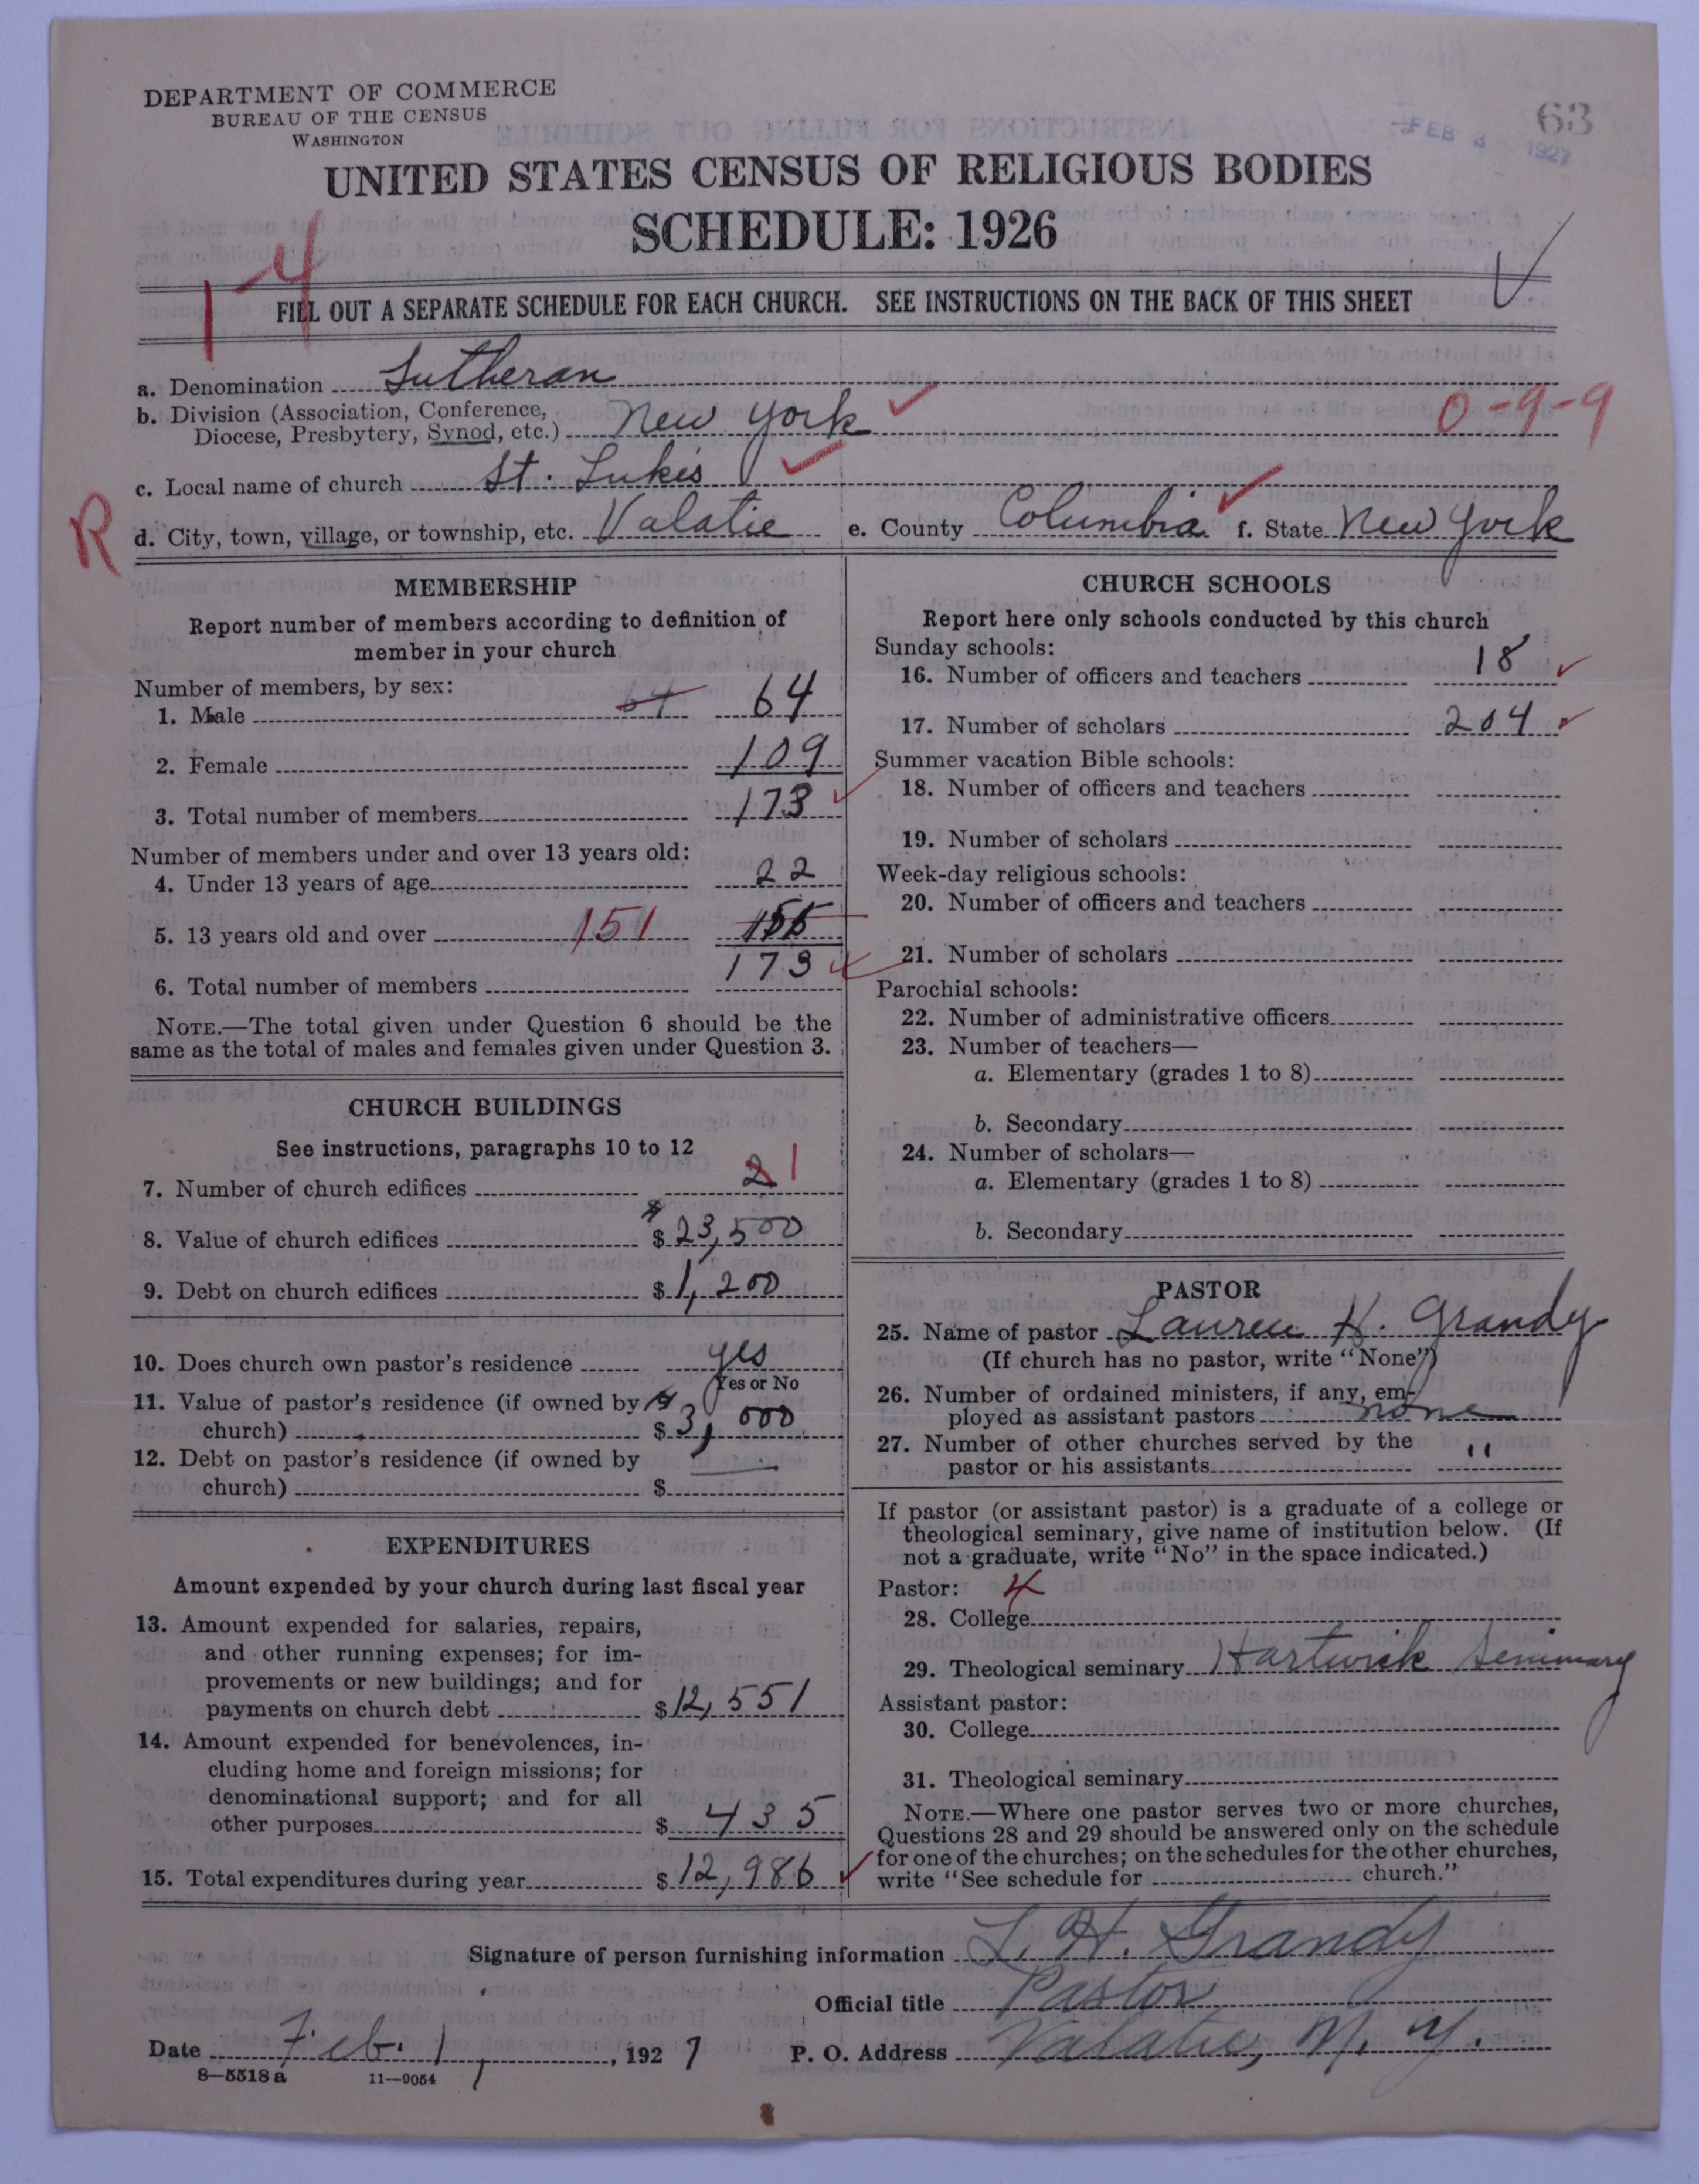 DEPARTMENT OF COMMERCE
BUREAU OF THE CENSUS
WASHINGTON
63
FEB 3 1927
UNITED STATES CENSUS OF RELIGIOUS BODIES
SCHEDULE: 1926
14
FILL OUT A SEPARATE SCHEDULE FOR EACH CHURCH. SEE INSTRUCTIONS ON THE BACK OF THIS SHEET
a. Denomination Lutheran
b. Division (Association, Conference, Diocese, Presbytery, Synod, etc.) New York
0-9-9
c. Local name of church St. Luke's
R
d. City, town, village, or township, etc. Valatie e. County Columbia f. State New York
MEMBERSHIP
Report number of members according to definition of
member in your church
Number of members, by sex:
1. Male 64 64
2. Female 109
3. Total number of members 173
Number of members under and over 13 years old:
4. Under 13 years of age 22
5. 13 years old and over 151 155
6. Total number of members 173
NOTE.—The total given under Question 6 should be the
same as the total of males and females given under Question 3.
CHURCH BUILDINGS
See instructions, paragraphs 10 to 12
7. Number of church edifices 2 1
8. Value of church edifices $ 23,500
9. Debt on church edifices $ 1,200
10. Does church own pastor's residence yes
Yes or No
11. Value of pastor's residence (if owned by
church) $ 3,000
12. Debt on pastor's residence (if owned by
church) $ —
EXPENDITURES
Amount expended by your church during last fiscal year
13. Amount expended for salaries, repairs,
and other running expenses; for im-
provements or new buildings; and for
payments on church debt $ 12,551
14. Amount expended for benevolences, in-
cluding home and foreign missions; for
denominational support; and for all
other purposes $ 435
15. Total expenditures during year $ 12,986
CHURCH SCHOOLS
Report here only schools conducted by this church
Sunday schools:
16. Number of officers and teachers 18
17. Number of scholars 204
Summer vacation Bible schools:
18. Number of officers and teachers
19. Number of scholars
Week-day religious schools:
20. Number of officers and teachers
21. Number of scholars
Parochial schools:
22. Number of administrative officers
23. Number of teachers—
a. Elementary (grades 1 to 8)
b. Secondary
24. Number of scholars—
a. Elementary (grades 1 to 8)
b. Secondary
PASTOR
25. Name of pastor Lauren H. Grandy
(If church has no pastor, write "None")
26. Number of ordained ministers, if any, em-
ployed as assistant pastors none
27. Number of other churches served by the
pastor or his assistants "
If pastor (or assistant pastor) is a graduate of a college or
theological seminary, give name of institution below. (If
not a graduate, write "No" in the space indicated.)
Pastor:
28. College
29. Theological seminary Hartwick Seminary
Assistant pastor:
30. College
31. Theological seminary
NOTE.—Where one pastor serves two or more churches,
Questions 28 and 29 should be answered only on the schedule
for one of the churches; on the schedules for the other churches,
write "See schedule for church."
Signature of person furnishing information L. H. Grandy
Official title Pastor
Date Feb. 1, 1927 P. O. Address Valatie, N. Y.
8—5518 a 11—9054